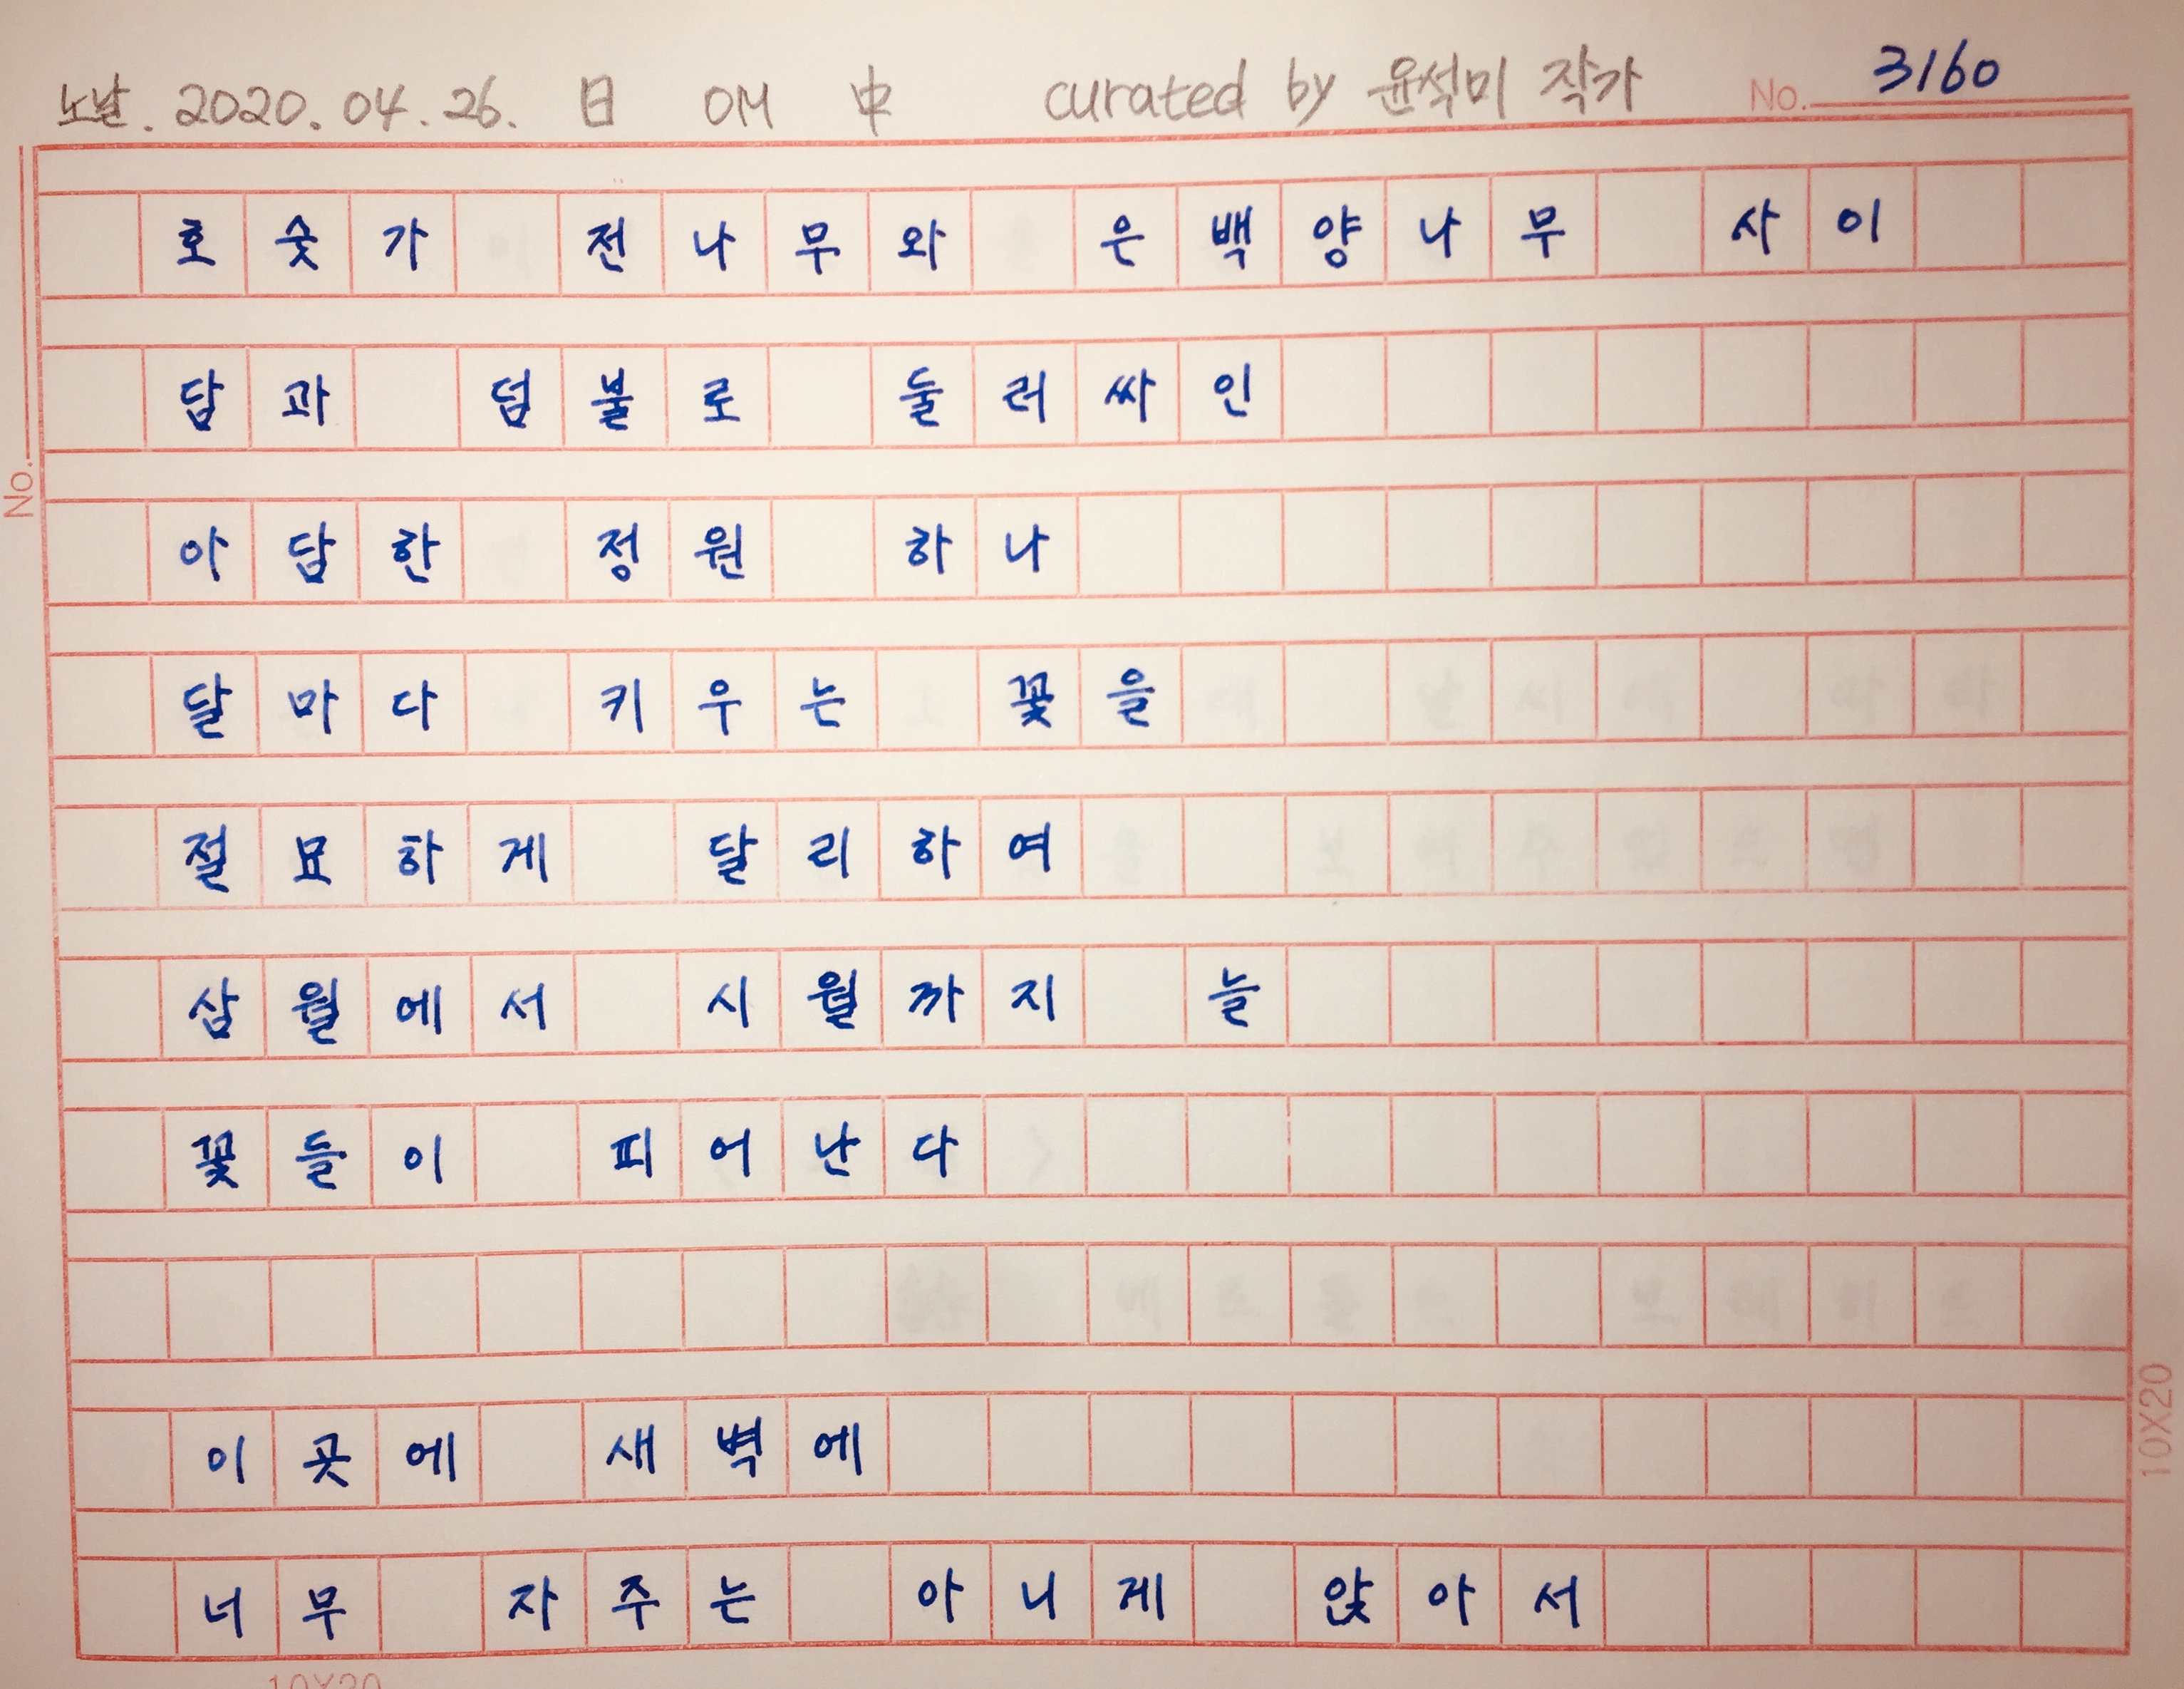 노날. 2020.04.26. 日 OM 中 curated by 윤석미 작가 No. 3160
호숫가 전나무와 은백양나무 사이
담과 덤불로 둘러싸인
아담한 정원 하나
달마다 키우는 꽃을
절묘하게 달리하여
삼월에서 시월까지 늘
꽃들이 피어난다
이곳에 새벽에
너무 자주는 아니게 앉아서
No.
10X20
10X20